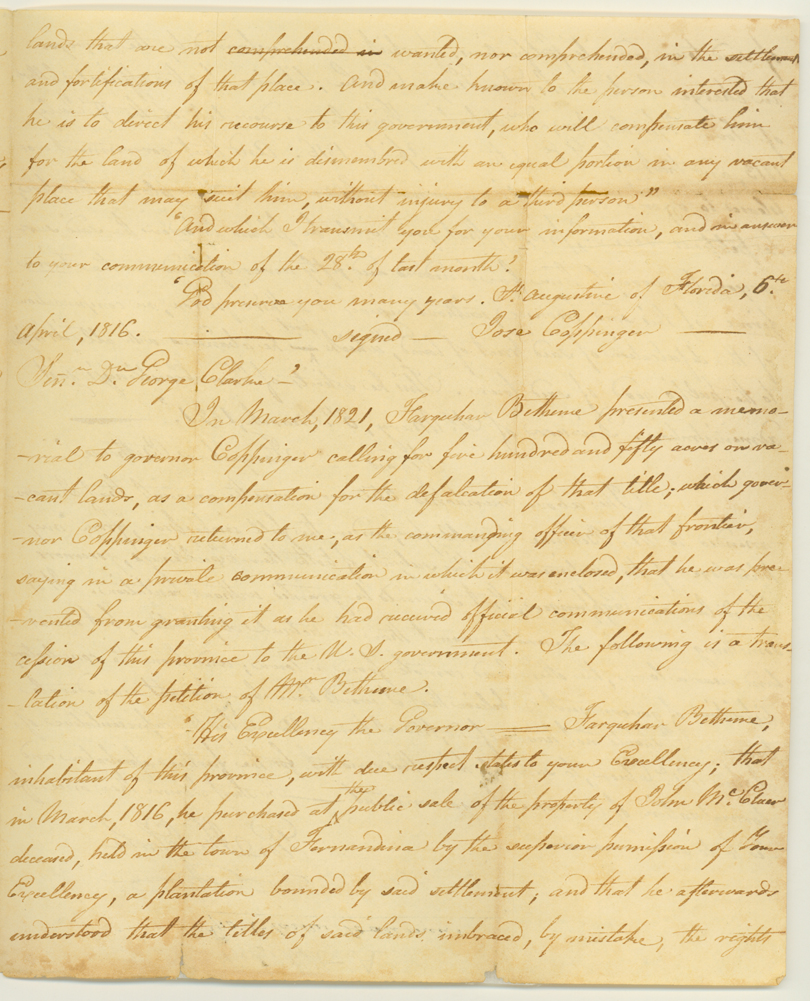 lands that are not comprehended in wanted, nor comprehended, in the settlement
and fortifications of that place. And make known to the person interested that
he is to direct his recourse to this government, who will compensate him
for the land of which he is dismembred with an equal portion in any vacant
place that may suit him, without injury to a third person"
"And which I transmit you for your information, and in answer
to your communication of the 28th. of last month."
"God preserve you many years. St. Augustine of Florida, 6.th
April, 1816. — signed — Jose Coppinger —
Sin.r Dn George Clarke"
In March, 1821, Farquhar Bethune presented a memo-
-rial to governor Coppinger calling for five hundred and fifty acres or va-
-cant lands, as a compensation for the defalcation of that title; which gover-
-nor Coppinger returned to me, as the commanding officer of that frontier,
saying in a private communication in which it was enclosed, that he was pre
-vented from granting it as he had received official communications of the
cession of this province to the U. S. government. The following is a trans-
-lation of the petition of Mr. Bethune.
"His Excellency the Governor — Farquhar Bethune,
inhabitant of this province, with due respect states to your Excellency; that
in March, 1816, he purchased at the public sale of the property of John Mc.Clure
deceased, held in the town of Fernandina by the superior permission of Your
Excellency, a plantation bounded by said settlement; and that he afterwards
understood that the titles of said lands imbraced, by mistake, the rights